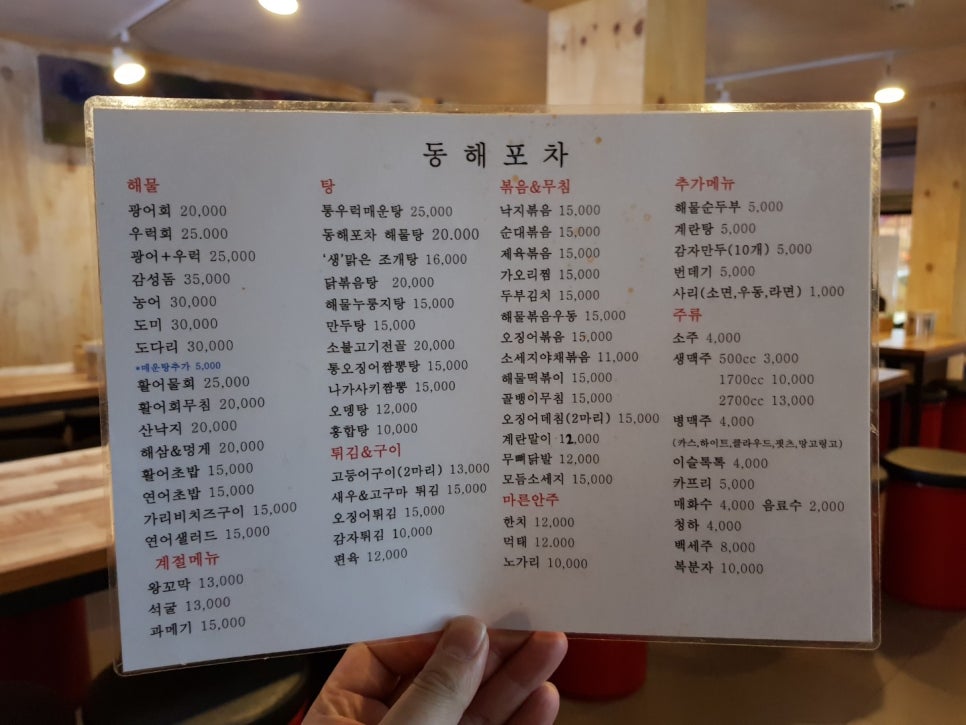 동해포차
해물
광어회 20,000
우럭회 25.000
광어+우럭 25,000
감성돔 35,000
농어 30,000
도미 30,000
도다리 30,000
*매운탕추가 5,000
활어물회 25,000
활어회무침 20,000
산낙지 20,000
해삼&멍게 20,000
활어초밥 15,000
연어초밥 15,000
가리비치즈구이 15,000
연어샐러드 15,000
계절메뉴
왕꼬막 13,000
석굴 13,000
과메기 15,000
탕
통우럭매운탕 25,000
동해포차 해물탕 20.000
'생'맑은 조개탕 16,000
닭볶음탕 20,000
해물누룽지탕 15,000
만두탕 15,000
소불고기전골 20,000
통오징어짬뽕탕 15,000
나가사키짬뽕 15,000
오뎅탕 12,000
홍합탕 10,000
튀김&구이
고등어구이(2마리) 13,000
새우&고구마 튀김 15,000
오징어튀김 15,000
감자튀김 10,000
편육 12,000
볶음&무침
낙지볶음 15,000
순대볶음 15,000
제육볶음 15,000
가오리찜 15,000
두부김치 15,000
해물볶음우동 15,000
오징어볶음 15,000
소세지야채볶음 11,000
해물떡볶이 15,000
골뱅이무침 15,000
오징어데침(2마리) 15,000
계란말이 12,000
무뼈닭발 12,000
모듬소세지 15,000
마른안주
한치 12,000
먹태 12.000
노가리 10,000
추가메뉴
해물순두부 5,000
계란탕 5,000
감자만두(10개) 5,000
번데기 5,000
사리(소면,우동,라면) 1,000
주류
소주 4,000
생맥주 500cc 3,000
1700cc 10,000
2700cc 13,000
병맥주 4,000
(카스,하이트,클라우드,핏츠,망고링고)
이슬톡톡 4,000
카프리 5,000
매화수 4,000 음료수 2,000
청하 4,000
백세주 8,000
복분자 10,000